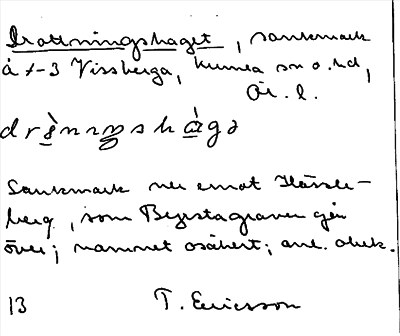 Drottningshaget, sankmark
å 1-3 Vissberga, Kumla sn o. hd,
Ör. l.
drò̱nniŋshà̱gə
Sankmark ner emot Hässle-
berg, som Byrstagraven går
över; namnet osäkert; anl. obek.
13 T. Ericsson